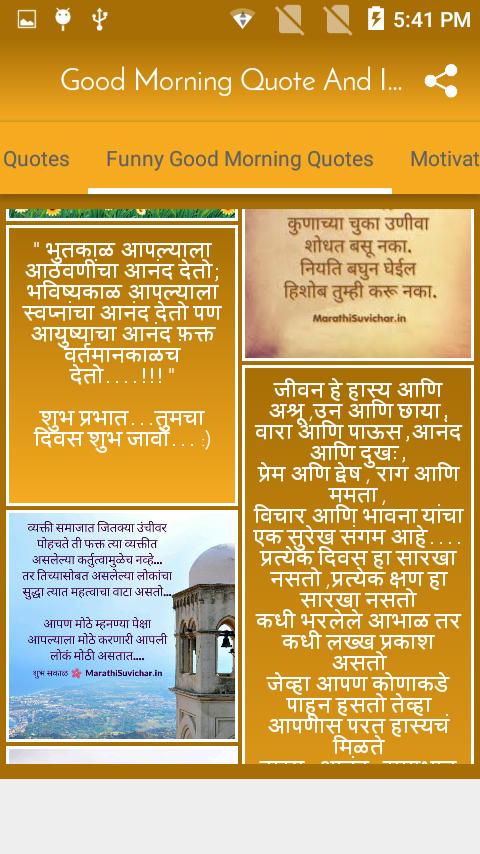 5:41 PM
Good Morning Quote And I...
Quotes
Funny Good Morning Quotes
Motivat
" भुतकाळ आपल्याला
आठवणींचा आनंद देतो;
भविष्यकाळ आपल्याला
स्वप्नांचा आनंद देतो पण
आयुष्याचा आनंद फ़क्त
वर्तमानकाळच
देतो....!!! "
शुभ प्रभात...तुमचा
दिवस शुभ जावो... :)
व्यक्ती समाजात जितक्या उंचीवर
पोहचते ती फक्त त्या व्यक्तीत
असलेल्या कर्तुत्वामुळेच नव्हे...
तर तिच्यासोबत असलेल्या लोकांचा
सुद्धा त्यात महत्वाचा वाटा असतो...
आपण मोठे म्हनण्या पेक्षा
आपल्याला मोठे करणारी आपली
लोकं मोठी असतात....
शुभ सकाळ MarathiSuvichar.in
कुणाच्या चुका उणीवा
शोधत बसू नका.
नियति बघुन घेईल
हिशोब तुम्ही करू नका.
MarathiSuvichar.in
जीवन हे हास्य आणि
अश्रू ,उन आणि छाया ,
वारा आणि पाऊस ,आनंद
आणि दुखः ,
प्रेम अणि द्वेष , राग आणि
ममता ,
विचार आणि भावना यांचा
एक सुरेख संगम आहे....
प्रत्येक दिवस हा सारखा
नसतो ,प्रत्येक क्षण हा
सारखा नसतो
कधी भरलेले आभाळ तर
कधी लख्ख प्रकाश
असतो
जेव्हा आपण कोणाकडे
पाहून हसतो तेव्हा
आपणास परत हास्यचं
मिळते